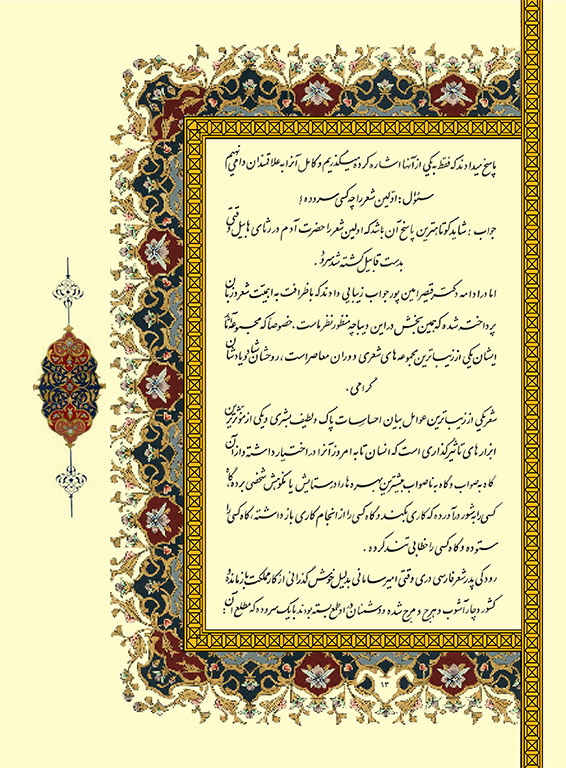 پاسخ میدادند که فقط به یکی از آنها اشاره کرده و میگذریم و کامل آنرا به علاقمندان وا می نهیم
سئوال : اوّلین شعر را چه کسی سروده ؟
جواب : شاید کوتاهترین پاسخ آن باشد که اولین شعر را حضرت آدم در رثای هابیل وقتی
بدست قابیل کشته شد سرود .
اما در ادامه دکتر قیصر امین پور جواب زیبایی دادند که با ظرافت به اهمیّت شعر و زبان
پرداخته شده که همین بخش در این دیباچه منظور نظر ماست ، خصوصاً که مجموعه آثار
ایشان یکی از زیباترین مجموعه های شعری دوران معاصر است ، روحشان شاد و یادشان
گرامی .
شعر یکی از زیباترین عوامل بیان احساسات پاک و لطیف بشری و یکی از مؤثرترین
ابزارهای تاثیرگذاری است که انسان تا به امروز آنرا در اختیار داشته و از آن
گاه به صواب و گاه به ناصواب بیشترین بهره ها را در ستایش یا نکوهش شخصی برده ، گاه
کسی را بشور درآورده که کاری بکند و گاه کسی را از انجام کاری باز داشته ، گاه کسی را
ستوده و گاه کسی را خطابی تند کرده .
رودکی پدر شعر فارسی دری وقتی امیر سامانی بدلیل خوش گذرانی از کار مملکت باز مانده و
کشور دچار آشوب و هرج و مرج شده و دشمنان در او طمع بسته بودند با یک سروده که مطلع آن :
۱۳